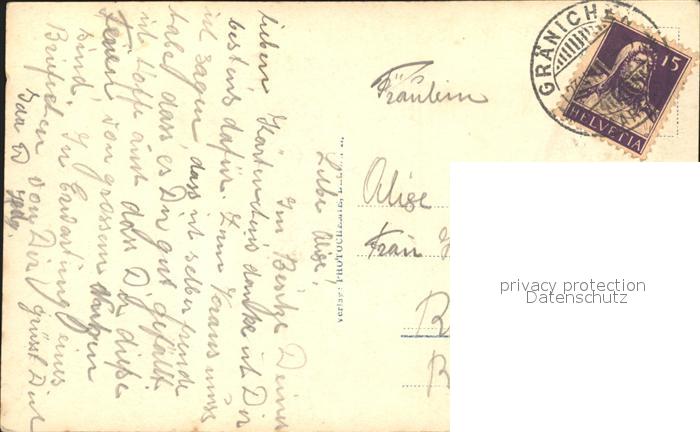 GRÄNICHEN
15
HELVETIA
Fräulein
Alise
Frau
privacy protection
Datenschutz
Liebe Alise!
Im Besitze Deines
lieben Kärtchens danke ich Dir
bestens dafür. Zum Voraus muss
ich sagen, dass ich selber Freude
habe, dass es Dir gut gefällt.
ich hoffe auch dass Dir diese
Ferien von grossem Nutzen
sind. In Erwartung eines
Briefchen von Dir grüsst Dich